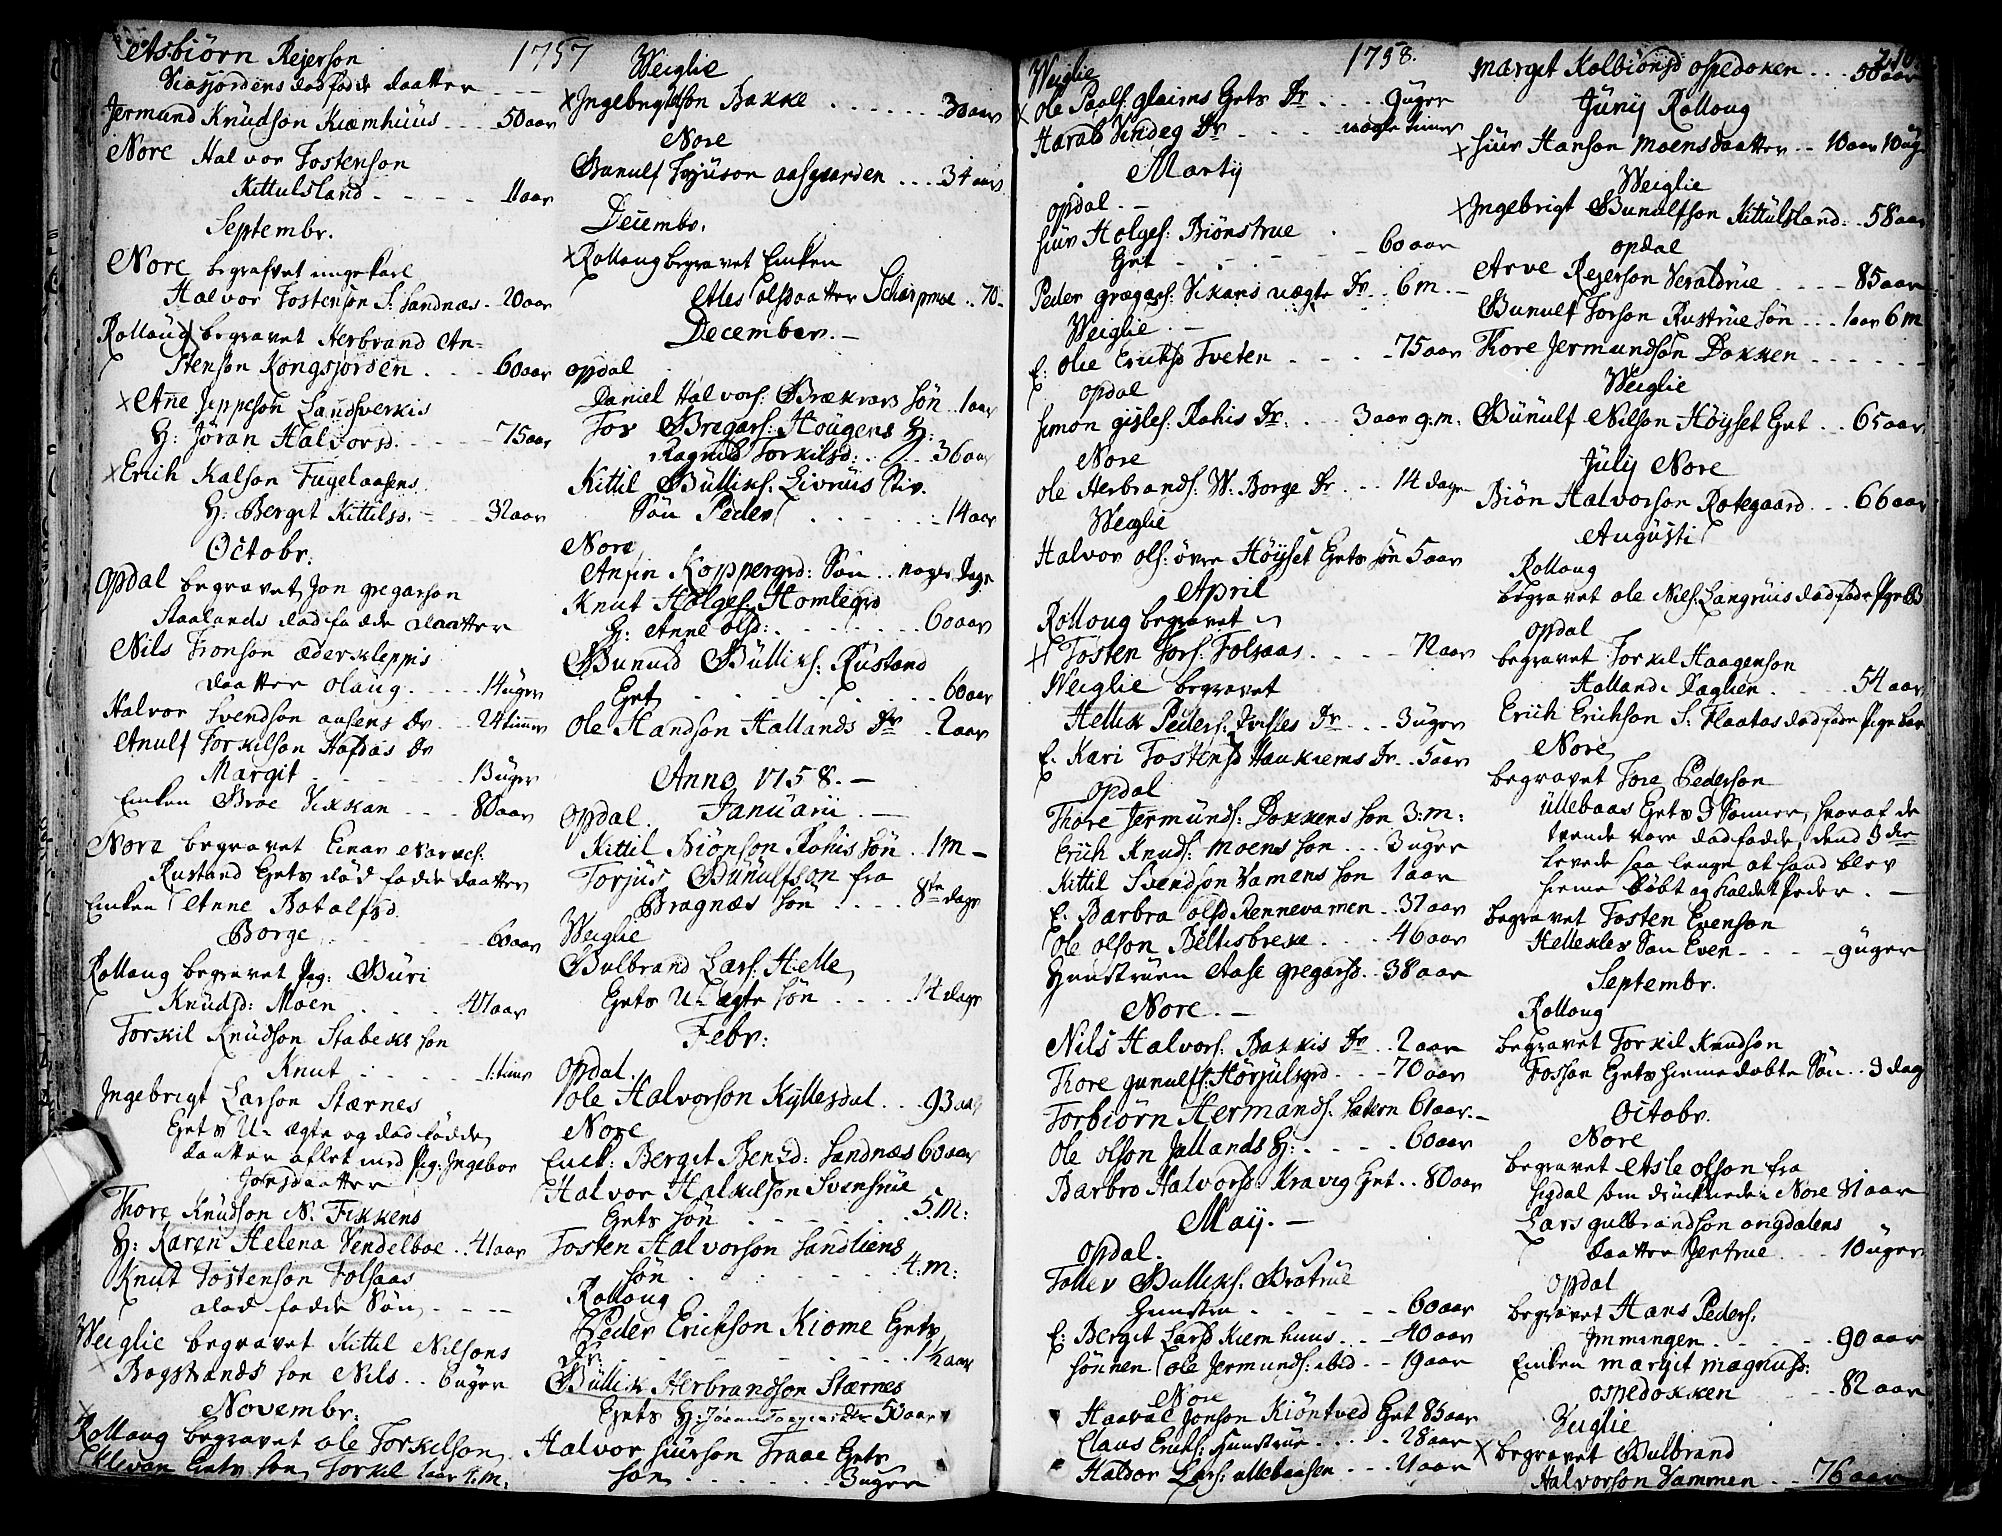 1757
Asbiørn Rejerson
Viasjordens dødfødde daatter
Jermund Knudson Kiæmhuus 50 aar
Nore Halvor Tostenson
Kittulsland 11 aar
Septembr.
Nore begrafvet ungekarl
Halvor Tostenson S. Sandnæs 20 aar
Rolloug begravet Herbrand An=
stenson Kongsjorden 60 aar
Anne Jeppeson Landsverkis
H: Jøran Halvorsd. 75 aar
Erich Kalson Fugelaasens
H: Bergit Kittilsd. 32 aar
Octobr.
Opdal begravet Jon gregarson
Staalands dødfødde daatter
Nils Tronson æderkleppis
daatter olaug 14 uger
Halvor Svendson aasens Dr 24 timer
Anulf Torkilson Hafdas Dr
Margit 13 uger
Enken Broe Vikkan 80 aar
Nore begravet Einar Narves:
Rustand Gets død fødde daatter
Enken Anne Botolfsd.
Borge 60 aar
Rolloug begravet Pig: Buri
Knudsd: Moen 41 aar
Torkil Knudson Stabeks søn
Knut 1: time
Ingebrigt Larson Stærnes
Gets U- ægte og død fødde
daatter aflet med Pig: Ingebor
Jonsdaatter
Thore Knudson N. Fikkens
H: Karen Helena Vendelboe 41 aar
Knut Tostenson Folsaas
død fødde Søn
Weiglie begravet Kittil Nilsons
Bogstrands søn Nils 6 uger
Novembr:
Rolloug begravet ole Torkelson
Eklevan Gets søn Torkil 1 aar 1: m:
Weiglie
Ingebrigtson Bakke 30 aar
Nore
Gunulf Tojuson aasgaarden 34 aar
Decembr.
Rolloug begravet Enken
Atles olsdaatter Scharpmoe 70
December.
opdal
Daniel Halvors: Brækvars søn 1 aar
Tor Bregars: Hougens H:
Ragnild Torkilsd: 36 aar
Kittil Bulliks: Livruus Stiv.
Søn Peder 14 aar
Nore
Anfin Koppergrd: Søn nogle dage
Knut Holges. Homlegrd
H: Anne olsd: 60 aar
Gunuld Bulliks: Rustand
Get 60 aar
Ole Handson Hallands Dr 2 aar
Anno 1758.
Januarii
opdal.
Kittil Biønson Rohis søn 1 m
Torjus Gunulfson fra
Bragnæs søn 8te dage
Weiglie
Gulbrand Lars: Helle
Gets U- ægte søn 14 dage
Febr:
opdal.
ole Halvorson Kyllesdal 93 aar
Nore
Enck: Bergit Bensd: Sandnæs 60 aar
Halvor Halkilson Svensrue
Gets søn 5. m:
Tosten Halvorson Sandliens
søn 4: m:
Rolloug
Peder Erichson Kiome Gets
Dr: 1½ aar
Bullik Herbrandson Stærnes
Gets H: 50 aar
Halvor Siurson Traae Gets
søn 3 uger
1758.
Weiglie
ole Paals: glaims Gets Dr 9 uger
Harald Vindeg Dr nogle timer
Martij
opdal.
Siur Holges: Biønstrue
Get 60 aar
Peder gregars: Vikans uægte Dr 6 m.
Weiglie
E: olie Erichsd Tveten 75 aar
opdal
Simon gisles: Rohis Dr: 3 aar 9. m.
Nore
ole Herbrands: W. Borge Dr 14 dage
Weglie
Halvor ols: øvre Høyset Gets søn 5 aar
April
Rolloug begravet
Tosten Tors: Folsaas 72 aar
Weiglie begravet
Hellik Peders: Dr 3 uger
E. Kari Tostensd Haukiems Dr. 5 aar
opdal
Thore Jermunds: Dokkens søn 3: m:
Erich Knuds: moens søn 3 uger
Kittil Svendson Vamens søn 1 aar
E. Barbra olsd Rennevamen 37 aar
Ole olson Beltisbreke 46 aar
Hunstruen Aase gregarsd. 38 aar
Nore.
Nils Halvors: Bakkis Dr 2 aar
Thore gunulfs: Hørjulsgrd 70 aar
Torbiørn Hermands: Satern 61 aar
Ole olson Jallands H: 60 aar
Barbro Halvorsd: Kravig Get 80 aar
Maij.
opdal.
Tollev Bulliks: Brotrue
Hunstru 60 aar
E: Bergit Larsd Kiemhuus 40 aar
sønnen ole Jermunds: ibid 19 aar
Nore
Haavæl Jonson Kiøntved Get 85 aar
Claus Erichs: Hunstrue 28 aar
Haldor Lars: ullebaasen 4 aar
Margit Kolbiønsd ospedoken 50 aar
Junij Rolloug
Siur Hanson moens daatter 10 aar 10 ug
Weiglie
Ingebrigt Gunulfson Kittulsland 58 aar
opdal
Arve Rejerson Veraldrue 85 aar
Gunulf Torson Rustrue søn 1 aar 6 m
Thore Jermundson Dokken
Weiglie
Gunulf Nilson Høyset Get 65 aar
Julij Nore
Biøn Halvorson Rotegaard 66 aar
Augusti
Rolloug
begravet ole Nils: Langruis dødføde Pige B
opdal
begravet Torkil Haagenson
Hallandi Daglien 54 aar
Erich Erichson S: Flaatas død føde Pige bar
Nore
begravet Tore Pederson
Ullebaas Gets 3 Sønner, hvoraf de
tvende vare død fødde, dend 3die
levede saa lenge at hand blev
hieme døbt og kaldet Peder.
begravet Tosten Evenson
Hellekles Søn Even 9 uger
Septembr.
Rolloug
begravet Torkil Knudson
Fossan Gets hieme døbte Søn 3 dag
Octobr.
Nore
begravet Asle olson fra
Sigdal som druknede i Nore 31 aar
Lars gulbrandson ongdalens
daatter Jertrue 10 uger
opdal
begravet Hans Peders.
Immingen 90 aar
Enken margit magnusd:
ospedokken 82 aar
Veiglie
begravet Gulbrand
Halvorson Vammen 76 aar